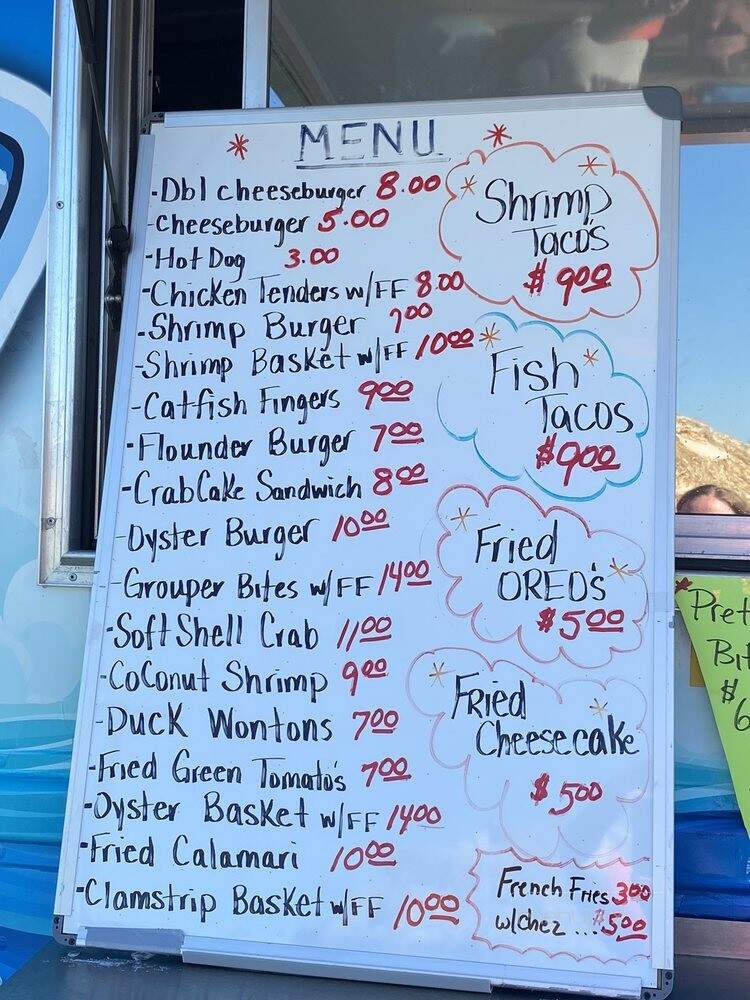 * MENU *
-Dbl cheeseburger 8.00
-Cheeseburger 5.00
-Hot Dog 3.00
-Chicken Tenders w/FF 8.00
-Shrimp Burger 7.00
-Shrimp Basket w/FF 10.00
-Catfish Fingers 9.00
-Flounder Burger 7.00
-CrabCake Sandwich 8.00
-Oyster Burger 10.00
-Grouper Bites w/FF 14.00
-Soft Shell Crab 11.00
-Coconut Shrimp 9.00
-Duck Wontons 7.00
-Fried Green Tomato's 7.00
-Oyster Basket w/FF 14.00
-Fried Calamari 10.00
-Clamstrip Basket w/FF 10.00
* Shrimp *
Taco's
$ 9.00
* Fish *
Tacos
$9.00
* Fried
OREO's *
$5.00
* Fried *
Cheesecake
$ 5.00
French Fries 3.00
w/chez ... $5.00
* Pret
Bit
$6